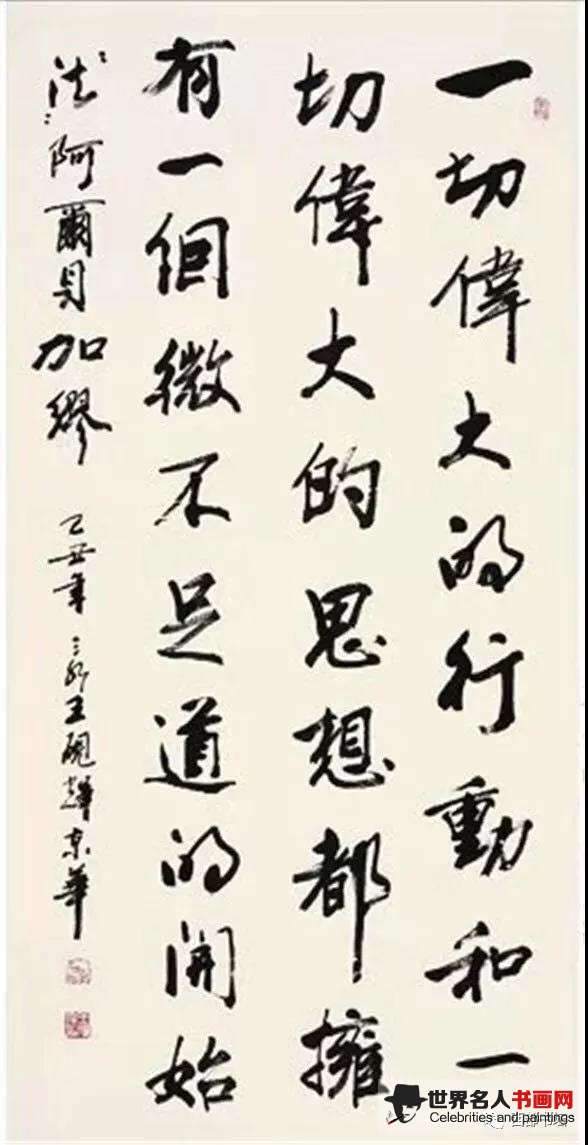 一切偉大的行動和一
切偉大的思想都擁
有一個微不足道的開始
法：阿爾貝加繆 己丑年 王硯輝京華
世界名人书画网
Celebrities and paintings